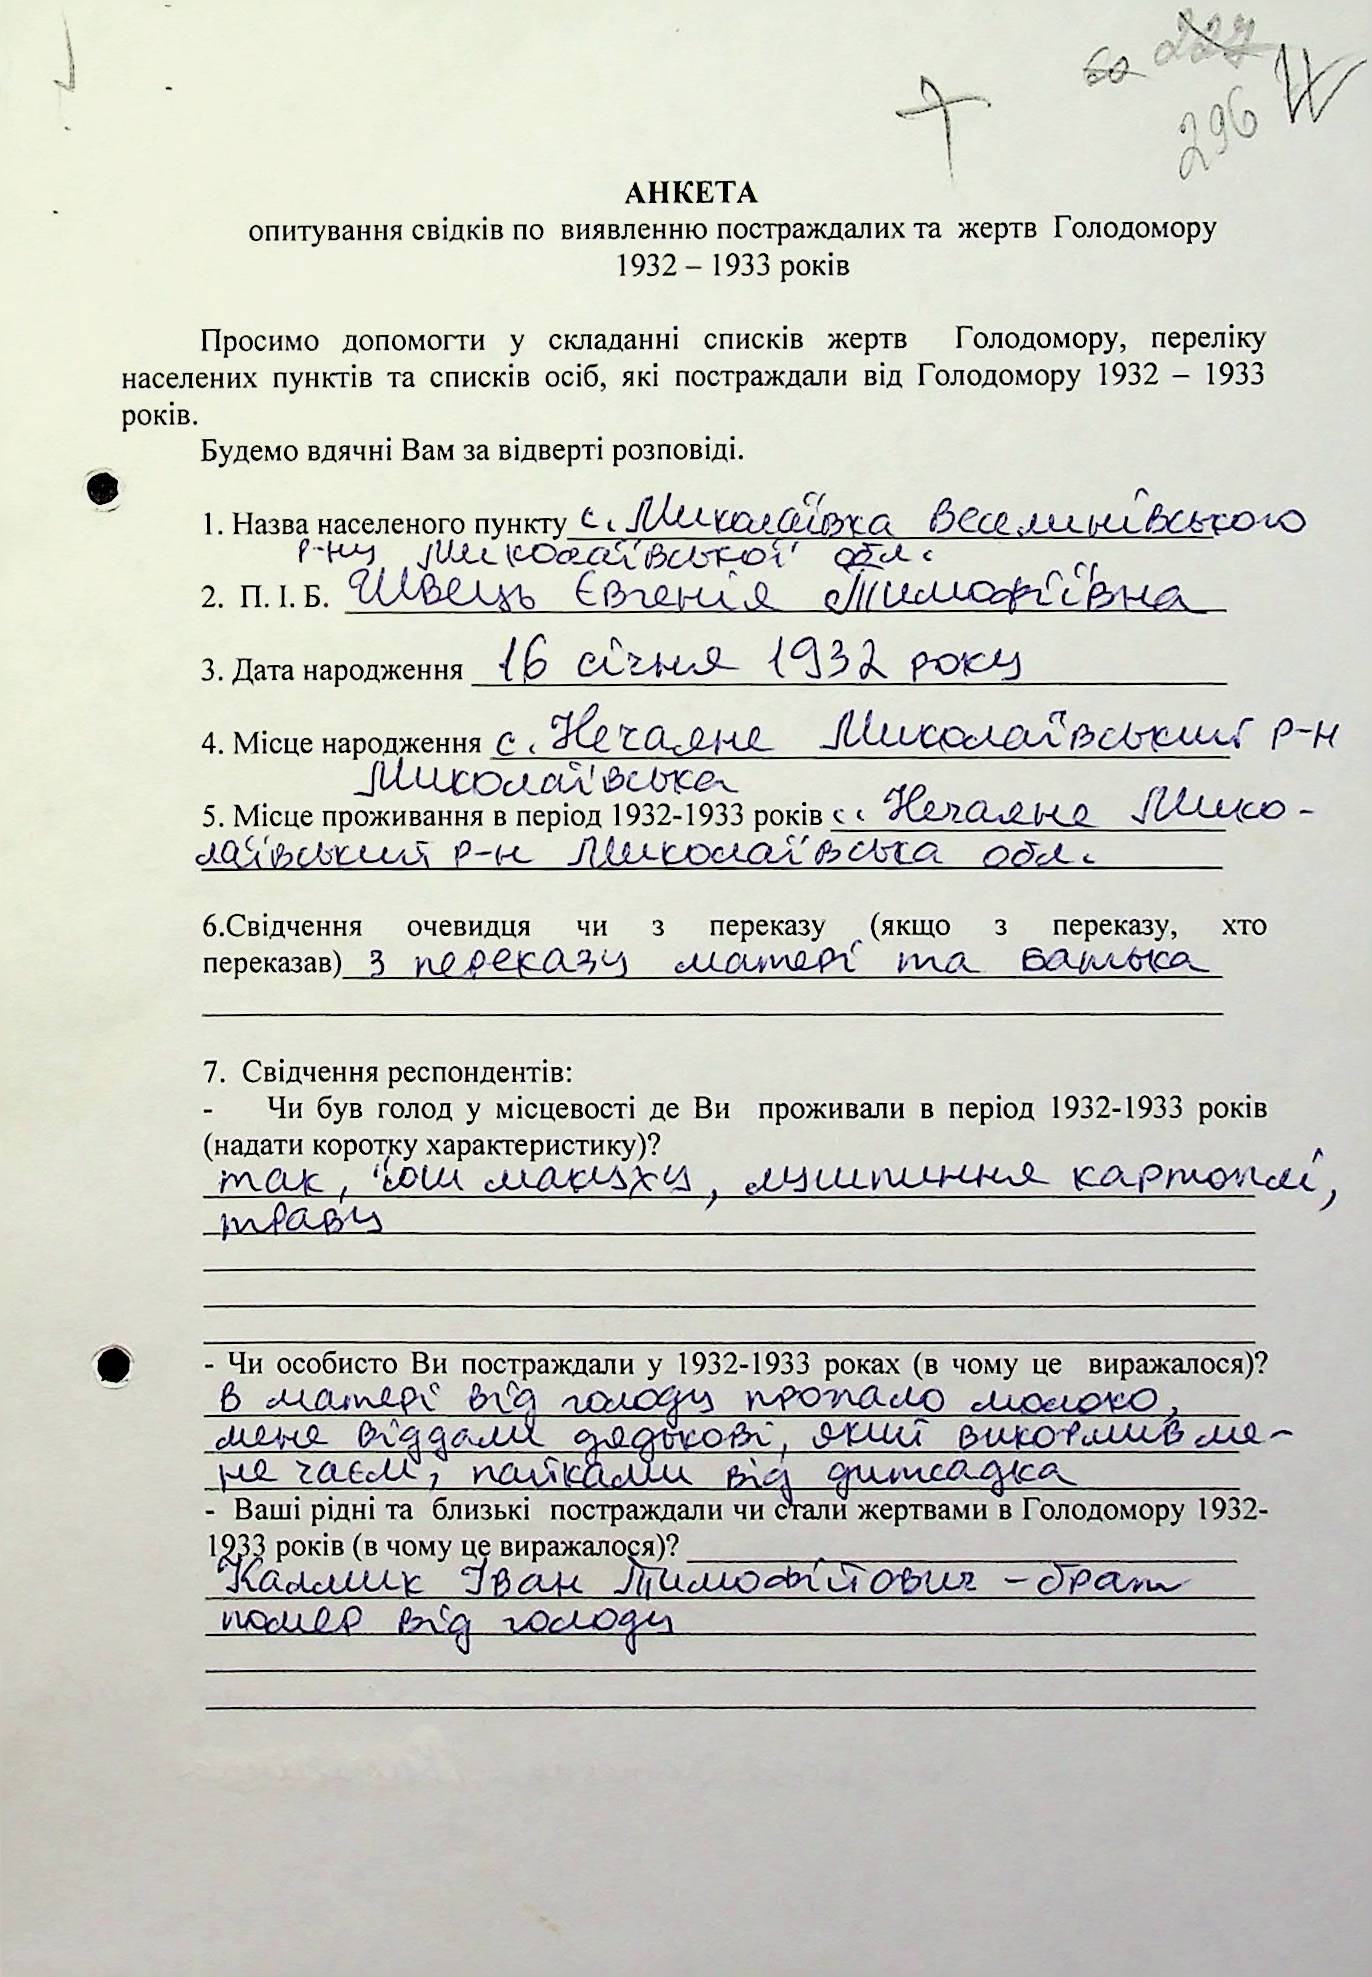 60 227
296
АНКЕТА
опитування свідків по виявленню постраждалих та жертв Голодомору
1932 – 1933 років
Просимо допомогти у складанні списків жертв Голодомору, переліку
населених пунктів та списків осіб, які постраждали від Голодомору 1932 – 1933
років.
Будемо вдячні Вам за відверті розповіді.
1. Назва населеного пункту с. Миколаївка Веселинівського
р-ну Миколаївської обл.
2. П. І. Б. Швець Євгенія Тимофіївна
3. Дата народження 16 січня 1932 року
4. Місце народження с. Нечаяне Миколаївський р-н
Миколаївська
5. Місце проживання в період 1932-1933 років с. Нечаяне Мико-
лаївський р-н Миколаївська обл.
6.Свідчення очевидця чи з переказу (якщо з переказу, хто
переказав) з переказу матері та батька
7. Свідчення респондентів:
- Чи був голод у місцевості де Ви проживали в період 1932-1933 років
(надати коротку характеристику)?
так, їли макуху, лушпиння картоплі,
траву
- Чи особисто Ви постраждали у 1932-1933 роках (в чому це виражалося)?
в матері від голоду пропало молоко,
мене віддали дядькові, який викормив ме-
не чаєм, пайками від дитсадка
- Ваші рідні та близькі постраждали чи стали жертвами в Голодомору 1932-
1933 років (в чому це виражалося)?
Калмик Іван Тимофійович - брат
помер від голоду